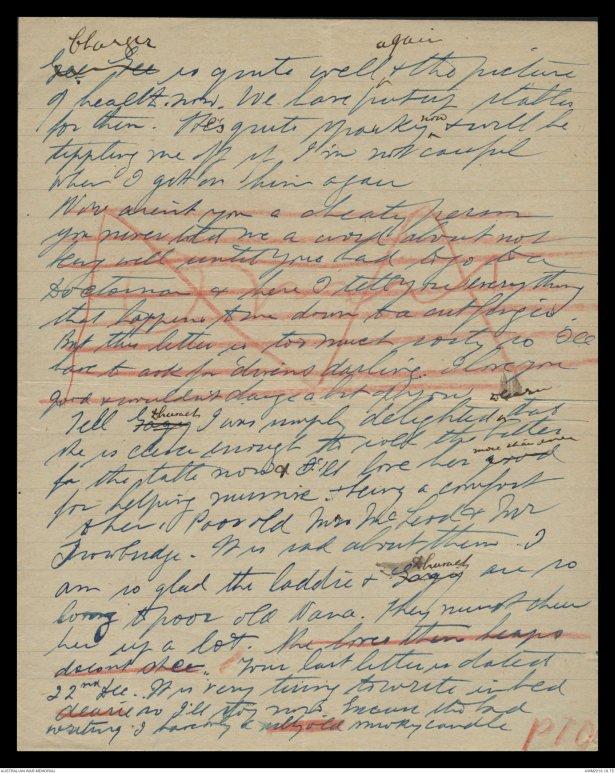 Charger again
Gee Gee is quite well, & the picture
of health now. We have put up stables
for them. He's quite sparky now & will be
tippling me off if I'm not careful
when I get on him again
Now arent you a cheaty person
you never told me a word about not
being well until you had to go to a
Doctorman & here I tell you everything
that happens to me down to a cut finger
But this letter is too much so
have to ask for darling. I love you
good & wouldn't change a bit of you.
Tell Thrumets I was simply delighted to learn that
she is clever enough to the letter
for the table now & I'll love her more than ever
for helping mummie & being a comfort
to her. Poor old Mrs McLeod & Mr
Trowbridge. It is sad about them. I
am so glad the laddie & Thrumets are so
loving to poor old Nana. They must cheer
her up a lot. She loves them heaps
doesnt she. Your last letter is dated
22nd Dec. It is very tiring to write in bed
dearie so I'll stop now. Excuse the bad
writing I have only a smoky candle
PTO
AUSTRALIAN WAR MEMORIAL